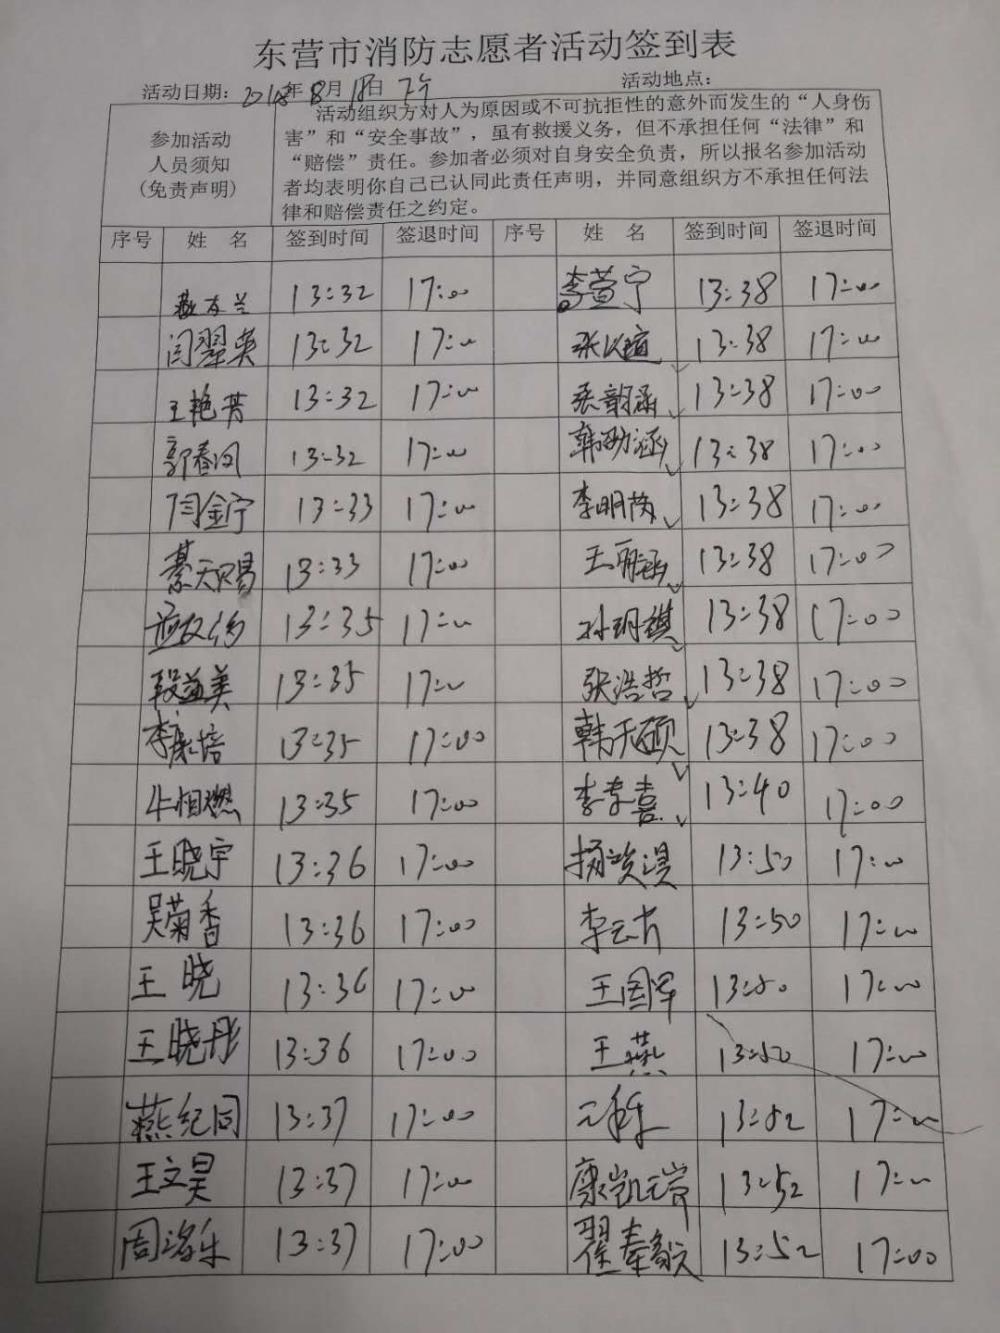 东营市消防志愿者活动签到表
活动日期：2018年8月18日 下午 活动地点：
参加活动
人员须知
(免责声明)
活动组织方对人为原因或不可抗拒性的意外而发生的“人身伤
害”和“安全事故”，虽有救援义务，但不承担任何“法律”和
“赔偿”责任。参加者必须对自身安全负责，所以报名参加活动
者均表明你自己已认同此责任声明，并同意组织方不承担任何法
律和赔偿责任之约定。
序号 姓 名 签到时间 签退时间 序号 姓 名 签到时间 签退时间
13:32 17:00 李萱宁 13:38 17:00
闫翠英 13:32 17:00 张 13:38 17:00
王艳芳 13:32 17:00 张韵涵 13:38 17:00
郭春凤 13:32 17:00 韩 涵 13:38 17:00
闫金宁 13:33 17:00 李明 13:38 17:00
綦天赐 13:33 17:00 王 涵 13:38 17:00
13:35 17:00 孙玥祺 13:38 17:00
段益美 13:35 17:00 张浩哲 13:38 17:00
李 培 13:35 17:00 韩天硕 13:38 17:00
牛相燃 13:35 17:00 李孝喜 13:40 17:00
王晓宇 13:36 17:00 杨 13:50 17:00
吴菊香 13:36 17:00 李云 13:50 17:00
王晓 13:36 17:00 王国军 13:50 17:00
王晓彤 13:36 17:00 王燕 13:50 17:00
燕纪同 13:37 17:00 13:52 17:00
王文昊 13:37 17:00 康凯 13:52 17:00
周 乐 13:37 17:00 翟秦毅 13:52 17:00